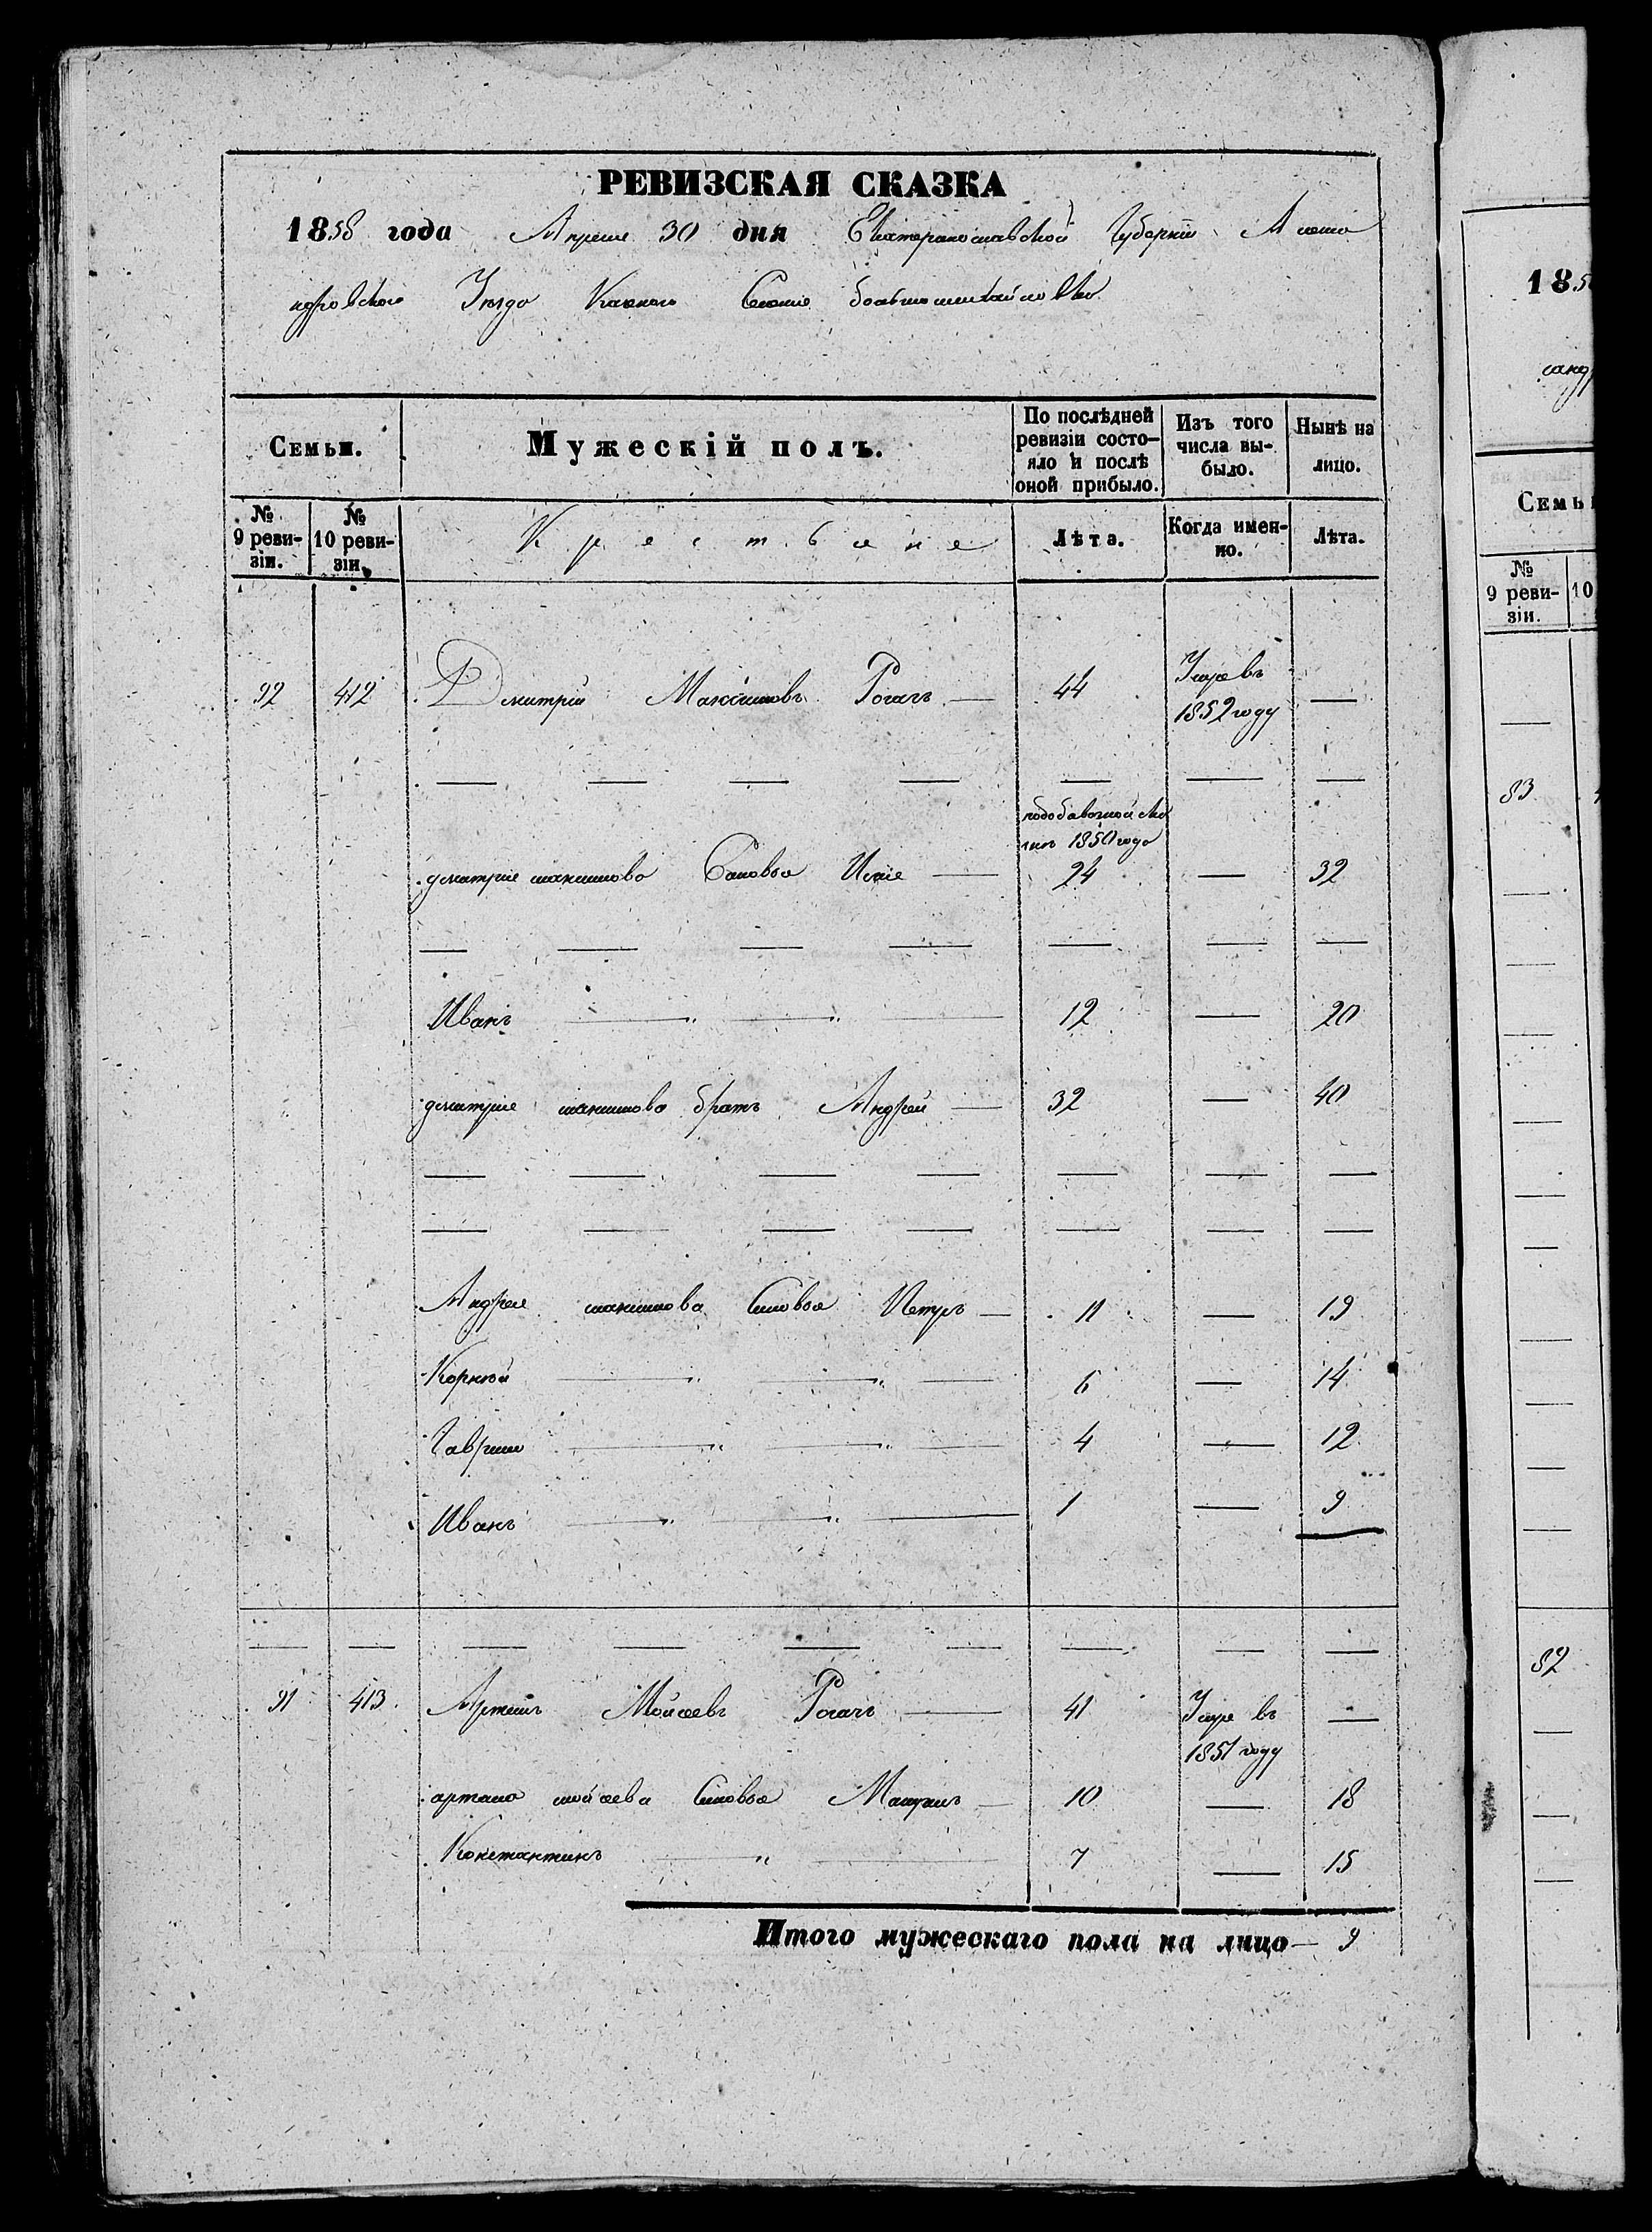 РЕВИЗСКАЯ СКАЗКА
1858 года Апреля 30 дня Екатеринославской Губернии Алексан
ндровского Уезда Казеного Селения большемихайловки
Семьи. Мужескій полъ. По послѣдней ревизіи состо-яло и послѣ оной прибыло. Изъ того числа вы-было. Нынѣ на лицо.
№ 9 реви-зіи. № 10 реви-зіи. Крестьяне Лѣта. Когда имен-но. Лѣта.
92 412 Дмитрий Максимовъ Рогачъ — 44 Умре въ 1852 году —
— — — — — — —
1850 года
дмитрия максимова Сыновья — 24 — 32
— — — — — — —
Иванъ —"—"— 12 — 20
дмитрия максимова братъ Андрей — 32 — 40
— — — — — — —
— — — — — — —
Андрея максимова Сыновья Петръ — 11 — 19
Корней —"—"— 6 — 14
Гаврило —"—"— 4 — 12
Иванъ —"—"— 1 — 9
— — — — — — — — —
91 413 Артемъ Мойсеевъ Рогачъ — 41 Умре въ 1851 году —
артема мойсеева Сыновья — 10 — 18
Константинъ —"— 7 — 15
Итого мужескаго пола на лицо — 9
185
санд
Семьи
№ 9 реви-зіи. 10
83
82